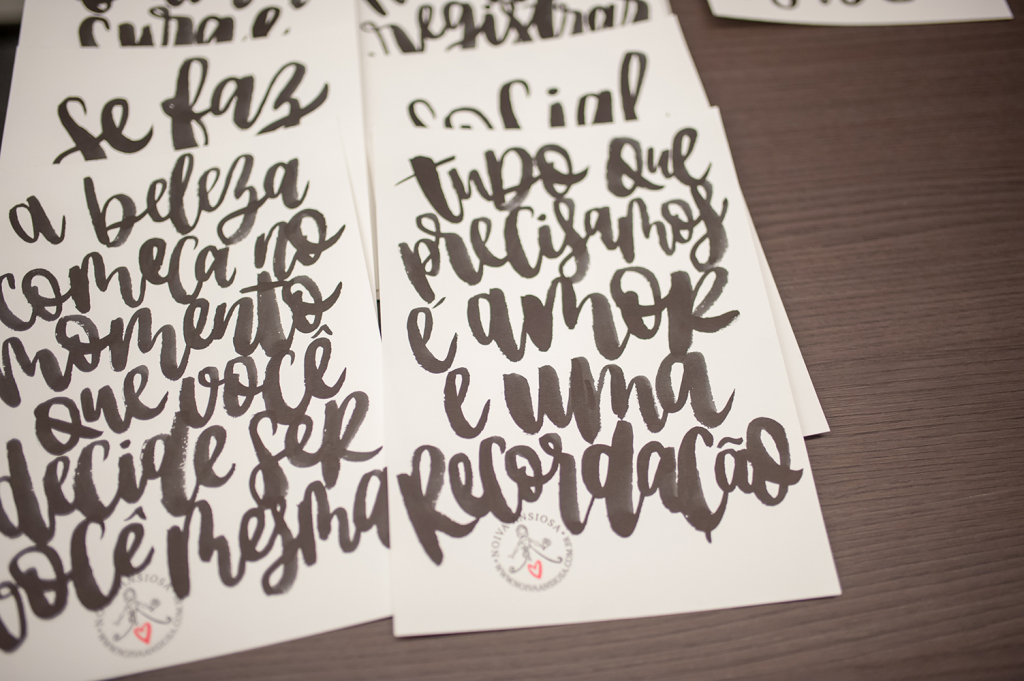 cura e
se faz
a beleza
começa no
momento
que você
decide ser
você mesma
NOIVA ANSIOSA
registrar
social
tudo que
precisamos
é amor
e uma
recordação
NOIVA ANSIOSA
WWW.NOIVAANSIOSA.COM.BR